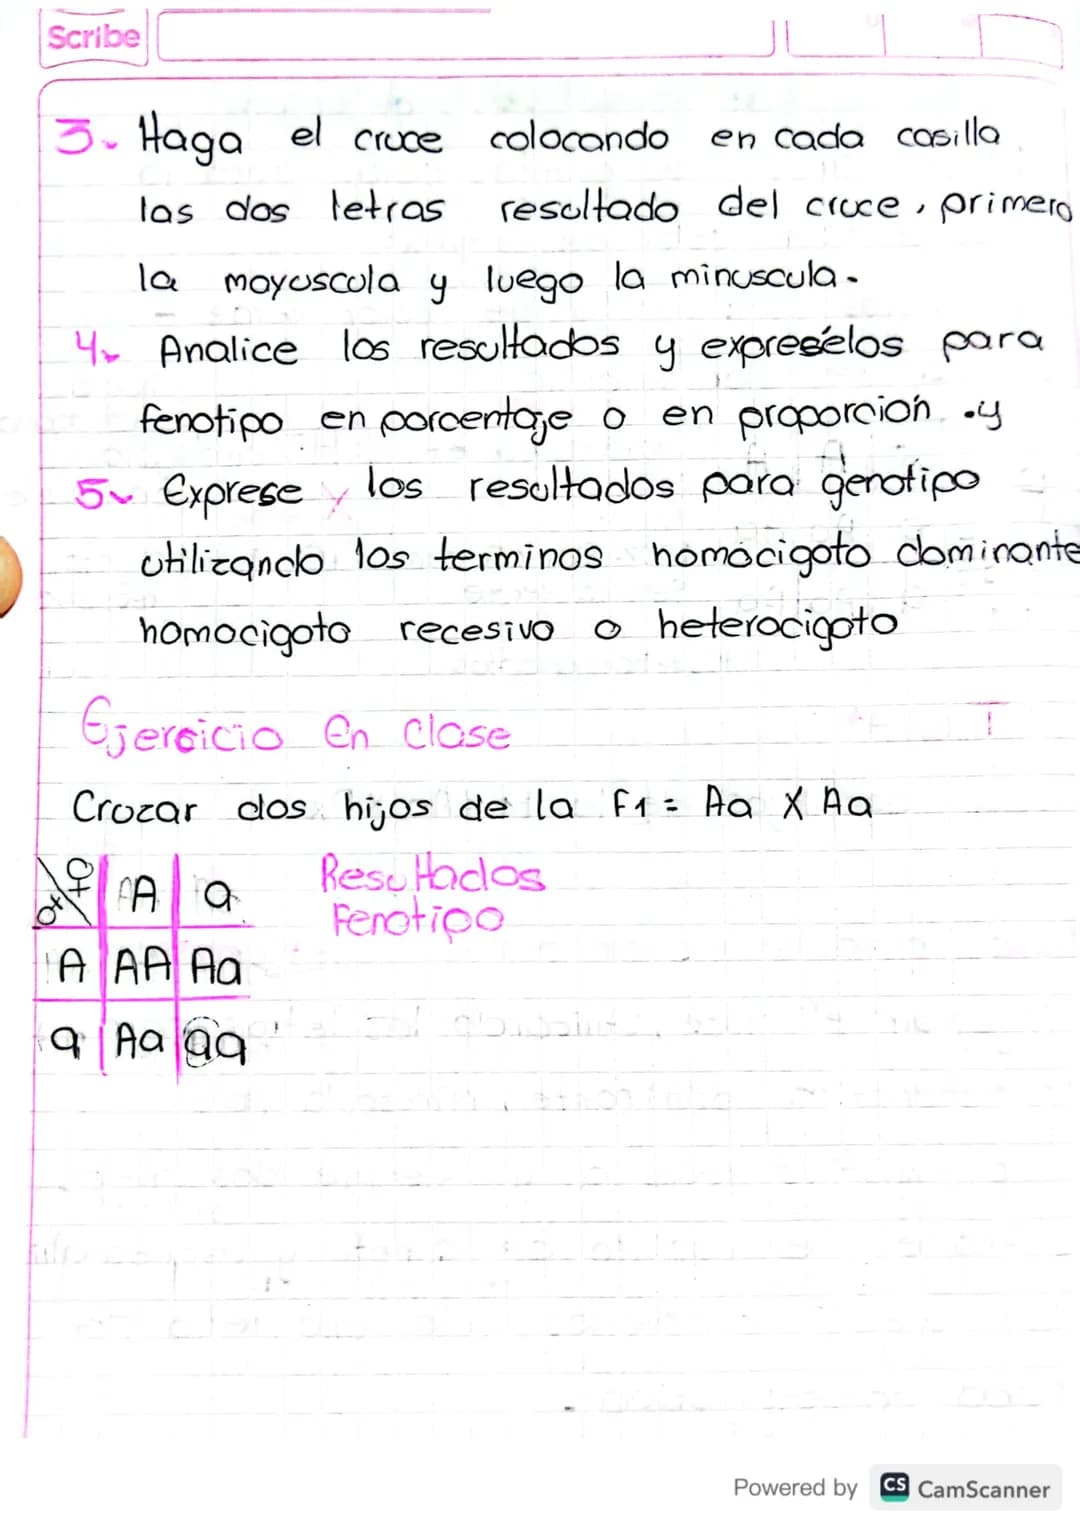 Scribe
3. Haga el cruce colocando en cada casilla
las dos letras resultado del cruce, primero
la mayuscula y luego la minuscula.
4. Analice los resultados y expresélos para
fenotipo en porcentaje o en proporción .y
5. Exprese y los resultados para genotipo
utilizando los terminos homócigoto dominante
homocigoto recesivo o heterocigoto
Ejercicio En Clase
Cruzar dos hijos de la F1 = Aa X Aa
♂ ♀ A a
A AA Aa
a Aa aa
Resultados
Fenotipo
Powered by CS CamScanner